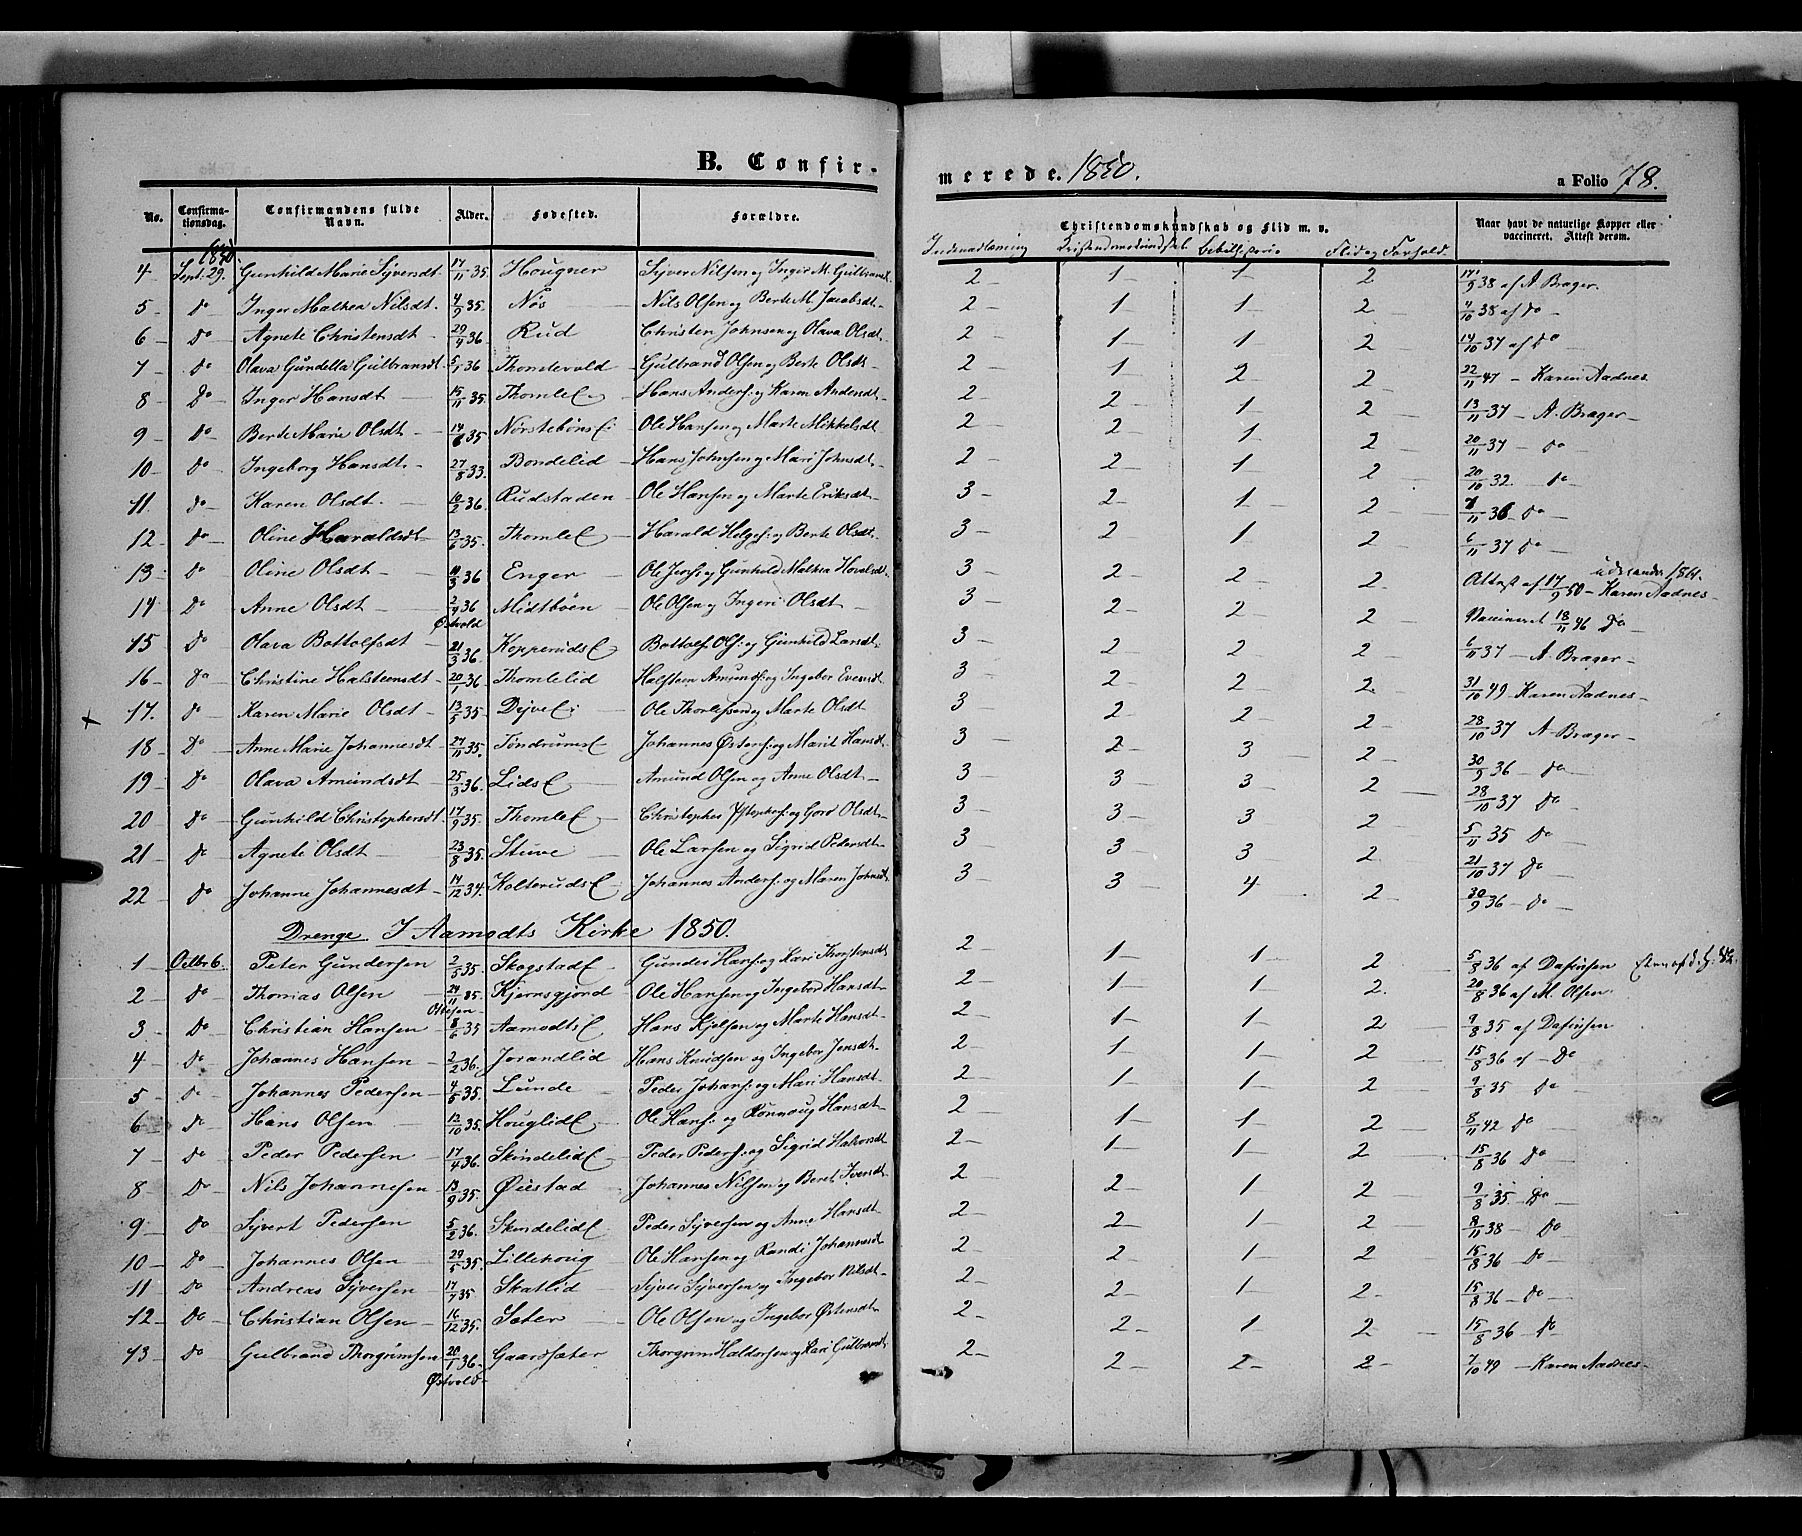 B. Confir-
merede. 1850.
a Folio 78.
No. Confirmationsdag. Confirmandens fulde Navn. Alder. Fødested. Forældre. Christendomskundskab og Flid m. v. Naar havt de naturlige Kopper eller vaccineret. Attest derom.
Indenadlæsning Kristendomskundskab Bibelhistorie Flid og Forhold
1850
4 Sept. 29. Gunhild Marie Syversdt 17/11 35. Hougner Syver Nilsen og Inger M. Gulbrandsdt 2 1 1 2 17/9 38 af A. Brager.
5 Do Inger Mathea Nilsdt. 4/9 35. Nøs Nils Olsen og Berte M. Jacobsdt 2 1 1 2 4/10 38 af do
6 Do Agnete Christensdt 29/4 36 Rud Christen Johnsen og Olava Olsdt. 2 1 1 2 14/10 37 af Do
7 Do Olava Gundella Gulbransdt 5/1 36 Thondevold Gulbrand Olsen og Berte Olsdt 2 1 2 2 22/11 47 Karen Aadnes
8 Do Inger Hansdt 15/11 35. Thomle E. Hans Anders. og Karen Andersdt 2 2 1 2 13/11 37 A. Brager
9 Do Berte Marie Olsdt 14/6 35 Nørstebøns E. Ole Hansen og Marte Mikkelsdt 2 2 1 2 20/11 37 Do
10 Do Ingeborg Hansdt 27/8 33. Bondelid Hans Johnsen og Mari Johnsdt. 2 2 1 2 20/10 32. Do
11 Do Karen Olsdt. 10/2 36. Rudstaden Ole Hansen og Marte Eriksdt 3 2 1 2 /11 36 Do
12 Do Oline Haraldsdt 13/6 35. Thomle E Harald Helges. og Berte Olsdt. 3 2 1 2 6/11 37 Do
13 Do Oline Olsdt /3 36 Enger Ole Jens. og Gunhild Mathea Hovelsdt 3 2 2 2 Attest af 17/9 50 Karen Aadnes udstandt 1861.
14 Do Anne Olsdt 2/4 36 Midtbøen Ole Olsen og Ingeri Olsdt 3 2 2 2 Vaccineret 18/11 46 Do
Østvold
15 Do Olava Bottolfsdt 21/3 36. Kopperuds E Bottolf Ols. og Gunhild Larsdt. 3 2 2 2 6/11 37 A. Brager
16 Do Christine Halsteensdt 20/1 36. Thomlelid Halsteen Amunds. og Ingebor Evensdt 3 2 2 2. 31/10 49 Karen Aadnes
17. Do Karen Marie Olsdt 13/5 35. Dejve E. Ole Thorlefsen og Marte Olsdt 3 2 2 2 28/10 37 A. Brager
18 Do Anne Marie Johannesdt 27/11 35. Tøndrums E Johannes Østens. og Marit Hansdt. 3 2 3 2 30/9 36 Do
19 Do Olava Amundsdt 25/3 36. Lids E Amund Olsen og Anne Olsdt 3 3 3 2 28/10 37 Do
20 Do Gunhild Christophersdt 17/9 35. Thomle E Christopher Christophers. og Goro Olsdt 3 3 3 2 5/11 35 Do
21 Do Agnete Olsdt 23/8 35. Stuve Ole Larsen og Sigrid Pedersdt 3 3 3 2 21/10 37 Do
22 Do Johanne Johannesdt 14/12 34. Kolteruds E Johannes Anders. og Maren Johnsdt 3 3 4 2 30/9 36 Do
Drenge. I Aamodts Kirke 1850.
1 Octbr 6. Peter Gundersen 2/5 35. Skogstad E Gunder Hans. og Kari Thostensdt 2 1 1 2 5/8 36 af Dafinsen
2 Do Thomas Olsen 24/11 35. Kjernsgjord Ole Hansen og Ingebor Hansdt 2 1 1 2. 20/8 36 af M. Olsen.
3 Do Christian Hansen 8/6 35 Aamodts E Hans Kjelsen og Marte Hansdt 2 1 1 2 9/8 35 af Dafinsen
4 Do Johannes Hansen 2/2 36. Jorandlid Hans Knudsen og Ingebor Jensdt 2 1 1 2 15/8 36 af Do
5 Do Johannes Pedersen 4/5 35. Lunde Peder Johans. og Mari Hansdt 2 1 1 2 9/8 35 Do
6 Do Hans Olsen 12/10 35. Houglid E Ole Hans. og Rønnoug Hansdt 2 1 1 2 8/11 42 Do
7 Do Peder Pedersen 17/4 36. Skindelid E Peder Peders. og Sigrid Halvorsdt 2 1 1 2 15/8 36 Do
8 Do Nils Johannesen 13/9 35. Øiestad Johannes Nilsen og Beret Iversdt 2 2 1 2 9/8 35 Do
9 Do Syvert Pedersen 5/2 36. Skindelid E Peder Syversen og Anne Hansdt 2 2 1 2 8/11 38 Do
10 Do Johannes Olsen 29/5 35. Lillehoug Ole Hansen og Randi Johannesdt 2 2 1 2 15/8 36 Do
11 Do Andreas Syversen 17/7 35 Skatlid Syver Syversen og Ingebor Nilsdt 2 2 1 2 15/8 36 Do
12 Do Christian Olsen 16/12 35. Sæter Ole Olsen og Ingebor Østensdt 2 2 1 2 15/8 36 Do
13 Do Gulbrand Thorgrimsen 20/1 36. Gaardsæter Thorgrim Haldorsen og Kari Gulbransdt 2 2 2 2 7/10 49 Karen Aadnes
Østvold